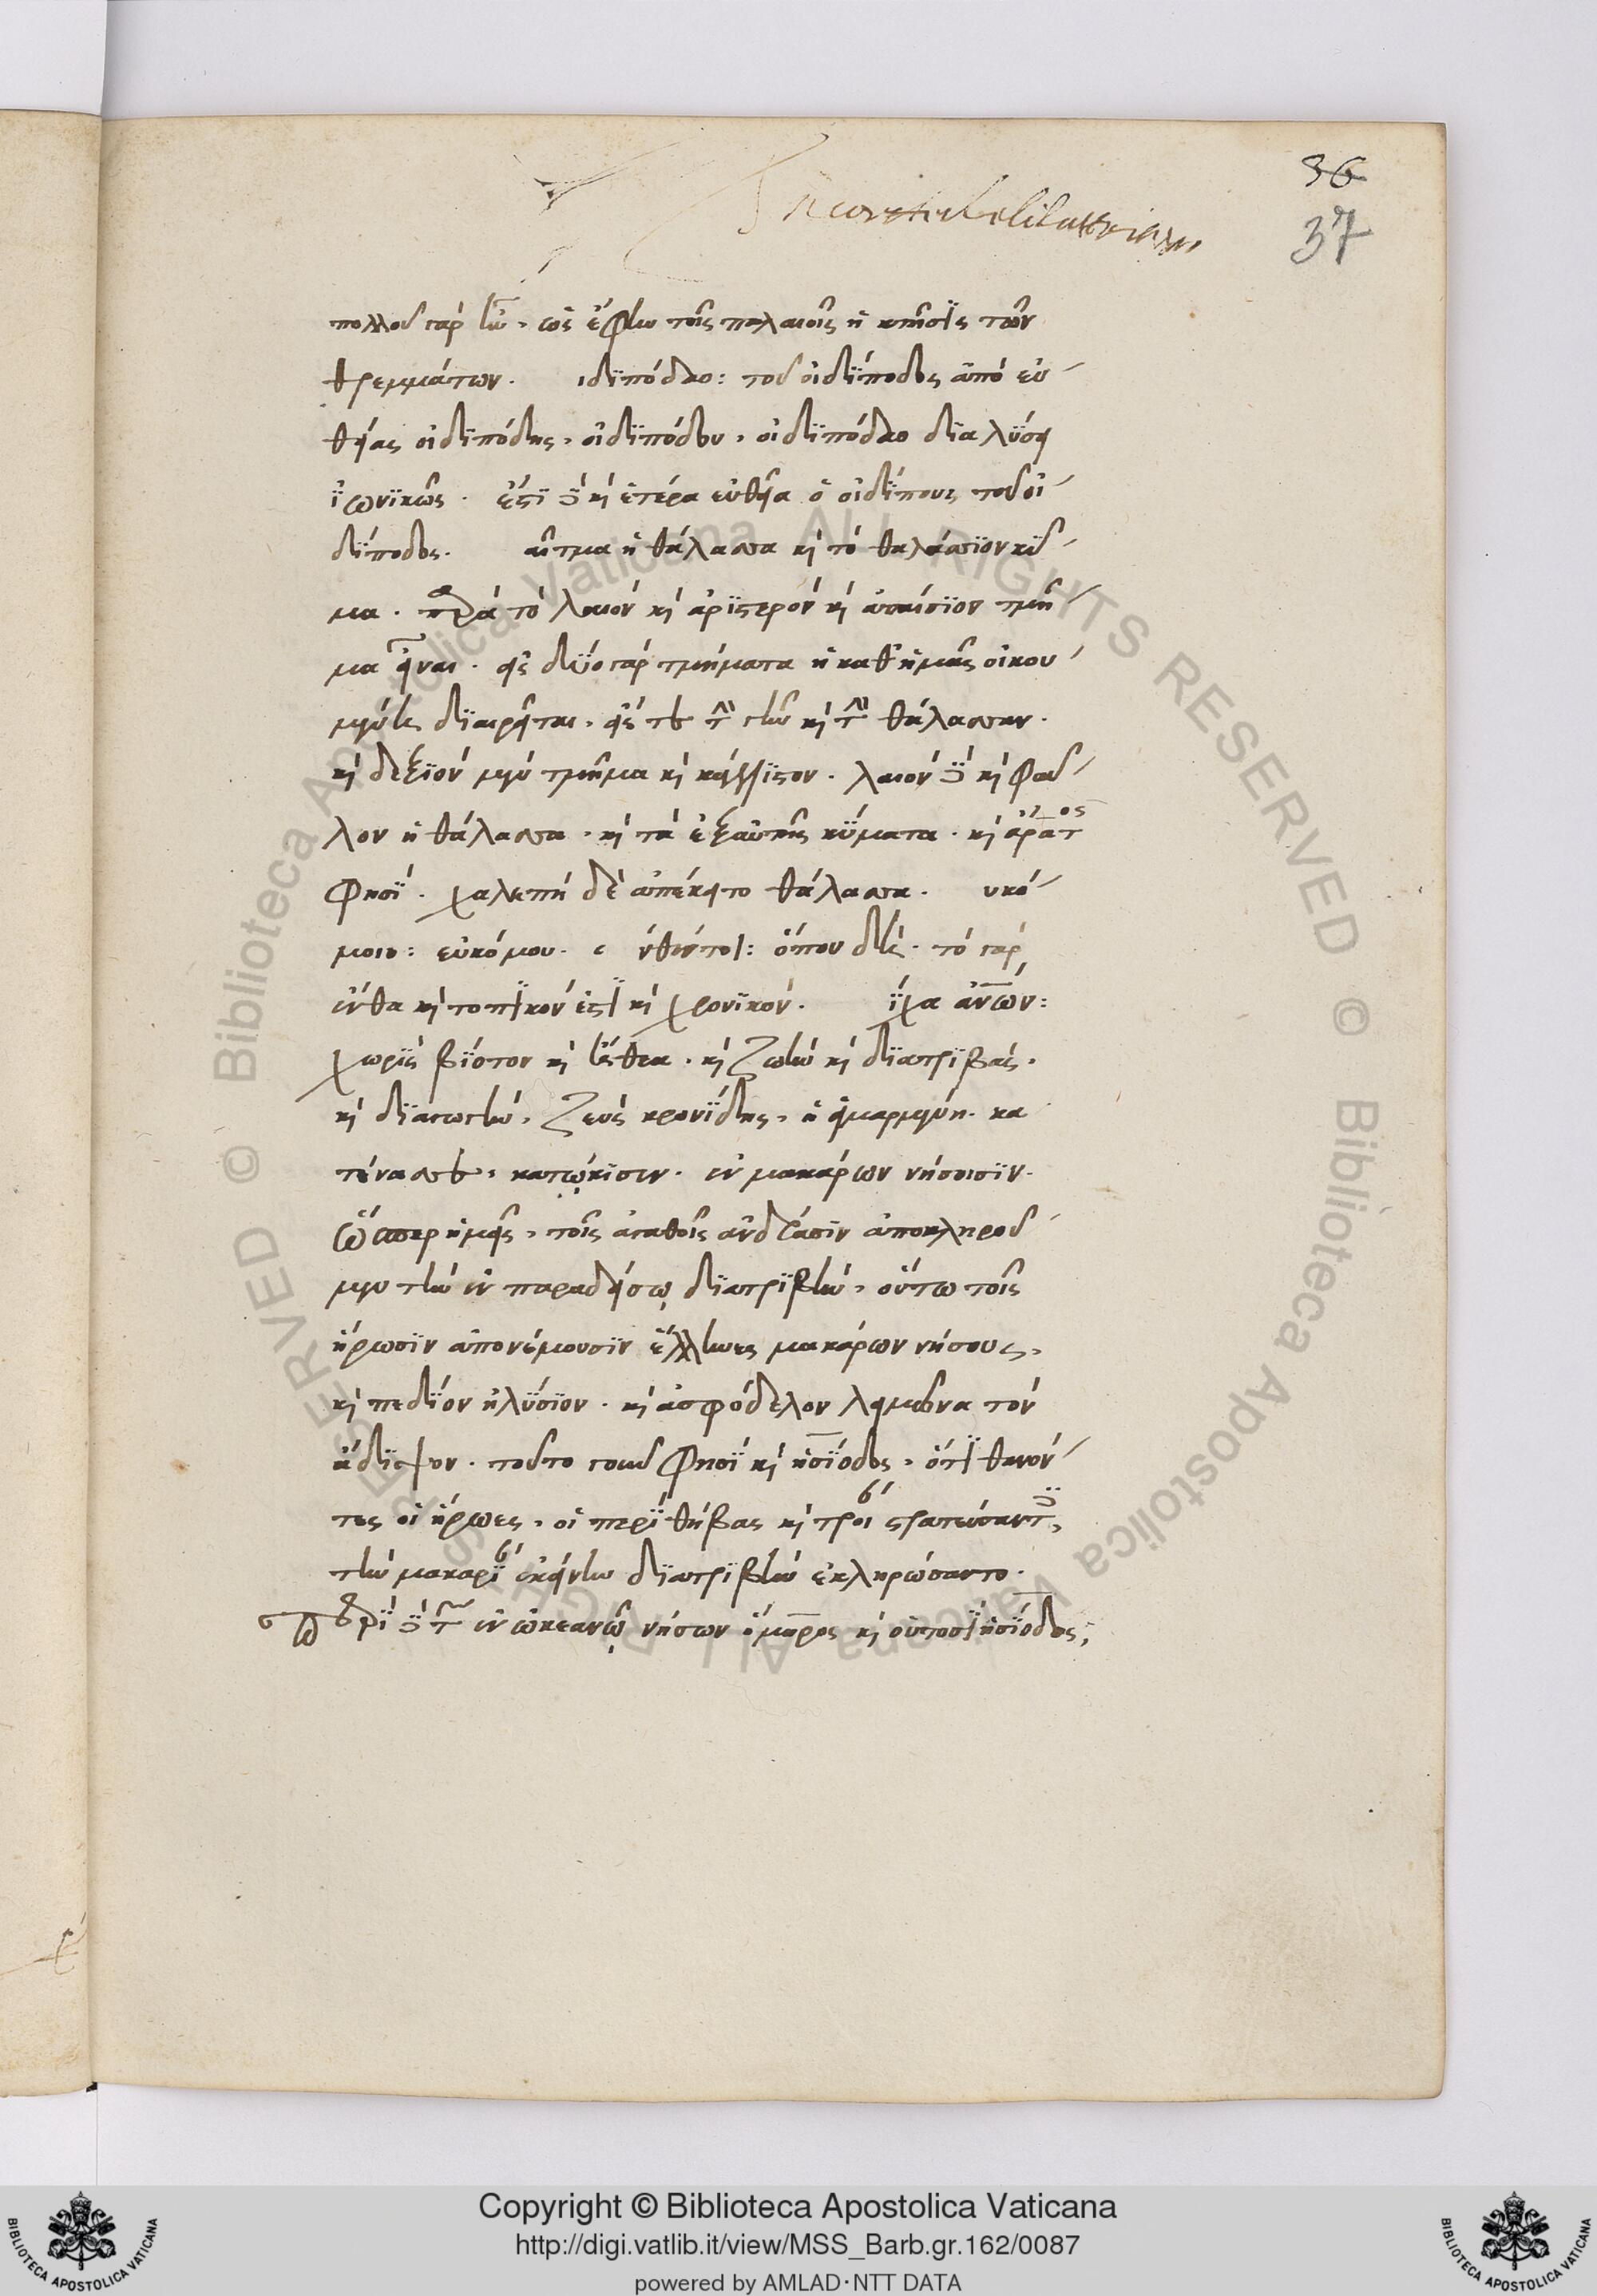 36
37
πολλοῦ γὰρ ἦν, ὡς ἔφην τοῖς παλαιοῖς ἡ κτῆσϊς τῶν
θρεμμάτων. ιδϊπόδαο: τοῦ οἰδΐποδος ἀπὸ εὐ
θείας οἰδϊπόδης, οἰδϊπόδου, οἰδϊπόδαο δϊαλύσει
ἰωνϊκῶς. ἔστϊ δὲ καὶ ἑτέρα εὐθεῖα ὁ οἰδΐπους τοῦ οἰ
δΐποδος. αῖτμα ἡ θάλασσα καὶ τὸ θαλάσσϊον κῦ
μα. παρὰ τὸ λαιὸν καὶ ἀρϊστερὸν καὶ ἀπαίσϊον τμῆ
μα εἶναι. εἰς δύο γὰρ τμήματα ἡ καθ ἡμᾶς οἰκου
μένη δϊαιρεῖται, εἴς τε τὴν γῆν καὶ τὴν θάλασσαν.
καὶ δεξϊὸν μὲν τμῆμα καὶ κάλλϊστον. λαιὸν δὲ καὶ φαῦ
λον ἡ θάλασσα. καὶ τὰ ἐξ αὐτῆς κύματα. καὶ ἄρατος
φησΐ. χαλεπὴ δὲ ἀπέκειτο θάλασσα. υκό
μοιο: εὐκόμου. ἔνθεν τοι: ὅπου δή. τὸ γὰρ
ἔνθα καὶ τοπϊκόν ἐστϊ καὶ χρονϊκόν. ΐχα ἀνῶν:
χωρὶς βΐοτον καὶ ἤθεα. καὶ ζωὴν καὶ δϊατρϊβάς,
καὶ δϊαγωγήν. Ζεὺς κρονΐδης, ἡ εἱμαρμένη. κα
τένασσε, κατῴκϊσεν. ἐν μακάρων νήσοισϊν.
ὥσπερ ἡμεῖς, τοῖς ἀγαθοῖς ἀνδράσϊν ἀποκληροῦ
μεν τὴν ἐν παραδείσῳ δϊατρϊβὴν, οὕτω τοῖς
ἥρωσϊν ἀπονέμουσϊν ἕλληνες μακάρων νήσους,
καὶ πεδΐον ἠλύσϊον. καὶ ἀσφόδελον λειμῶνα τὸν
ἀδϊψον. τοῦτο γοῦν φησΐ καὶ ἡσΐοδος, ὅτϊ θανόν
τες οἱ ἥρωες, οἱ περΐ θήβας καὶ τροίαν στρατεύσαντες,
τὴν μακαρΐαν ἐκείνην δϊατρϊβὴν ἐκληρώσαντο.
περΐ δὲ τῶν ἐν ὠκεανῷ νήσων ὅμηρος καὶ οὑτοσϊ ἡσΐοδος,
Copyright © Biblioteca Apostolica Vaticana
http://digi.vatlib.it/view/MSS_Barb.gr.162/0087
powered by AMLAD·NTT DATA